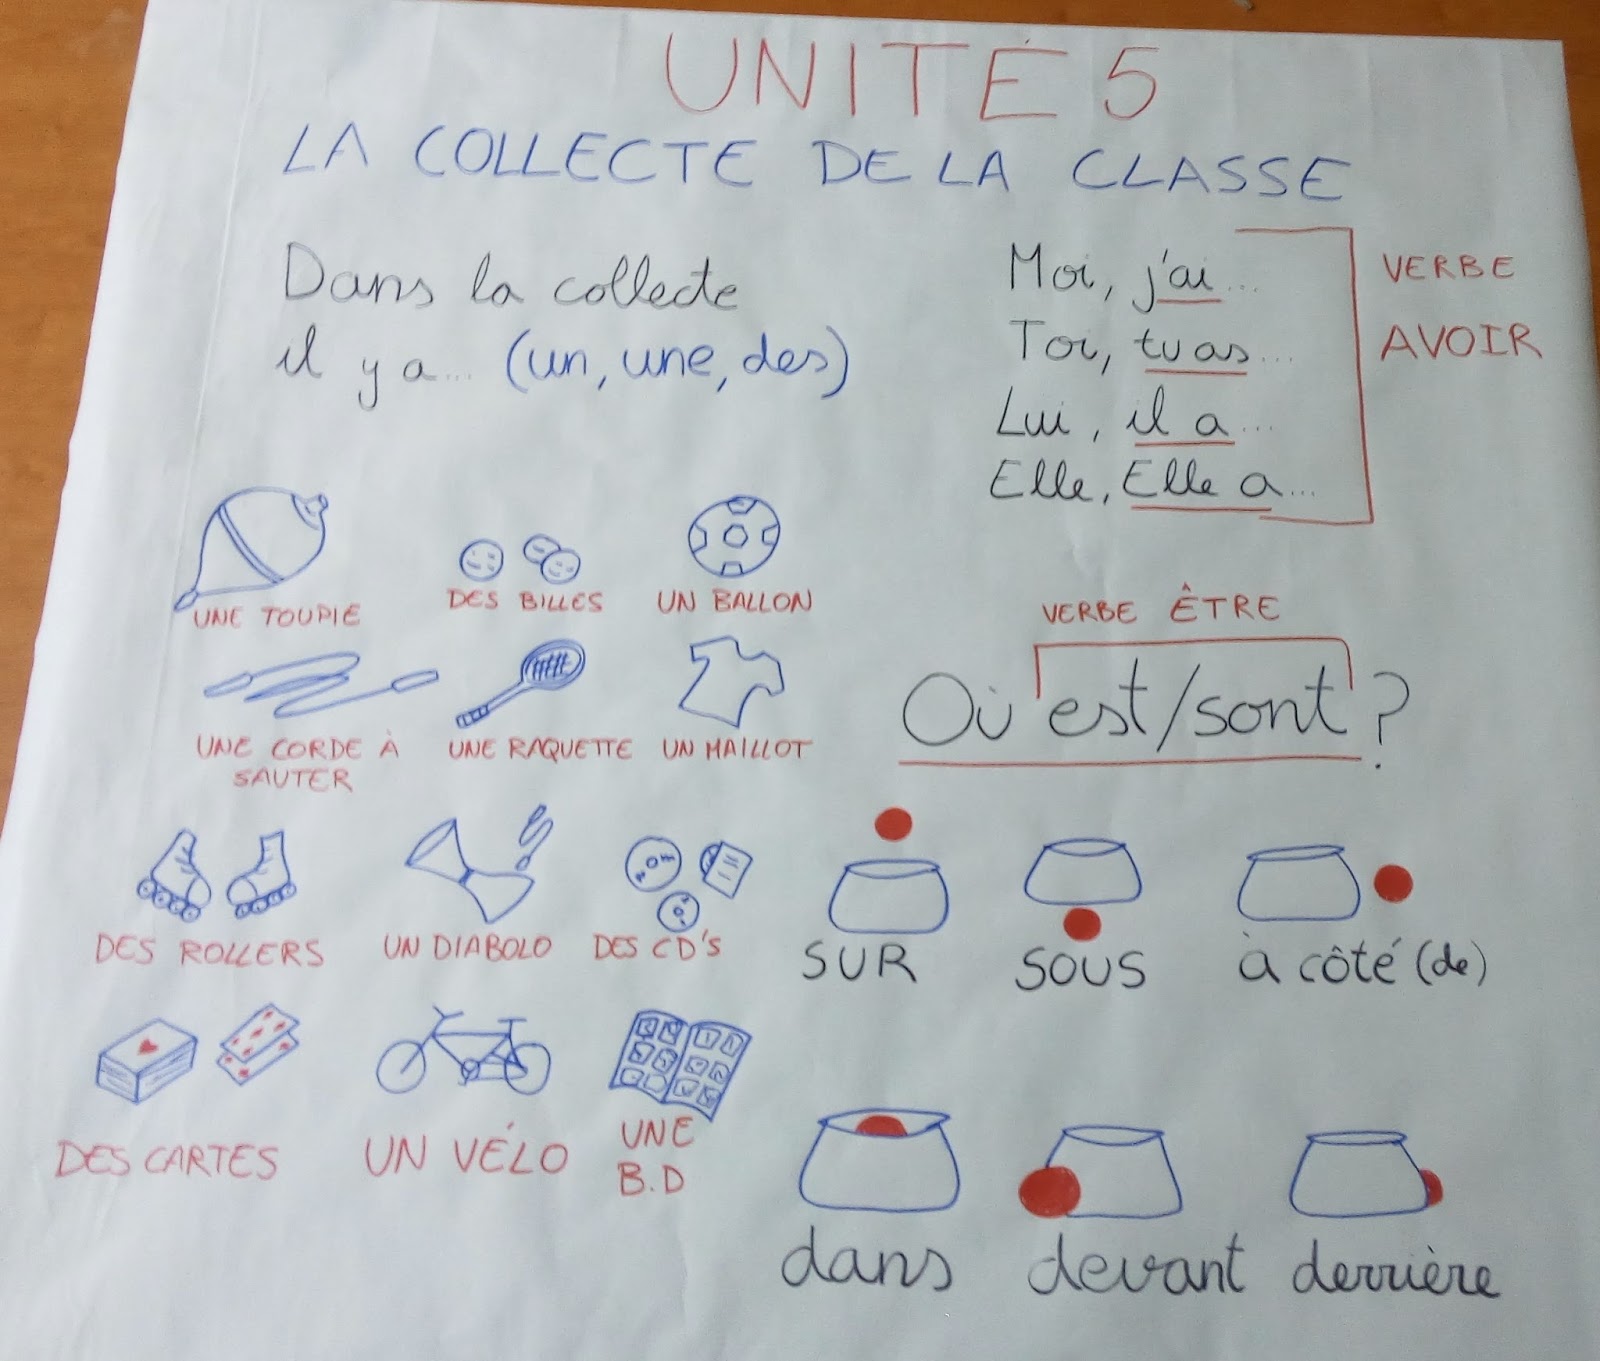 UNITÉ 5
LA COLLECTE DE LA CLASSE
Dans la collecte
il y a... (un, une, des)
Moi, j'ai...
Toi, tu as...
Lui, il a...
Elle, Elle a...
VERBE
AVOIR
UNE TOUPIE
DES BILLES
UN BALLON
UNE CORDE À
SAUTER
UNE RAQUETTE
UN MAILLOT
DES ROLLERS
UN DIABOLO
DES CD'S
DES CARTES
UN VÉLO
UNE
B.D
VERBE ÊTRE
Où est/sont ?
SUR
SOUS
à côté (de)
dans
devant
derrière